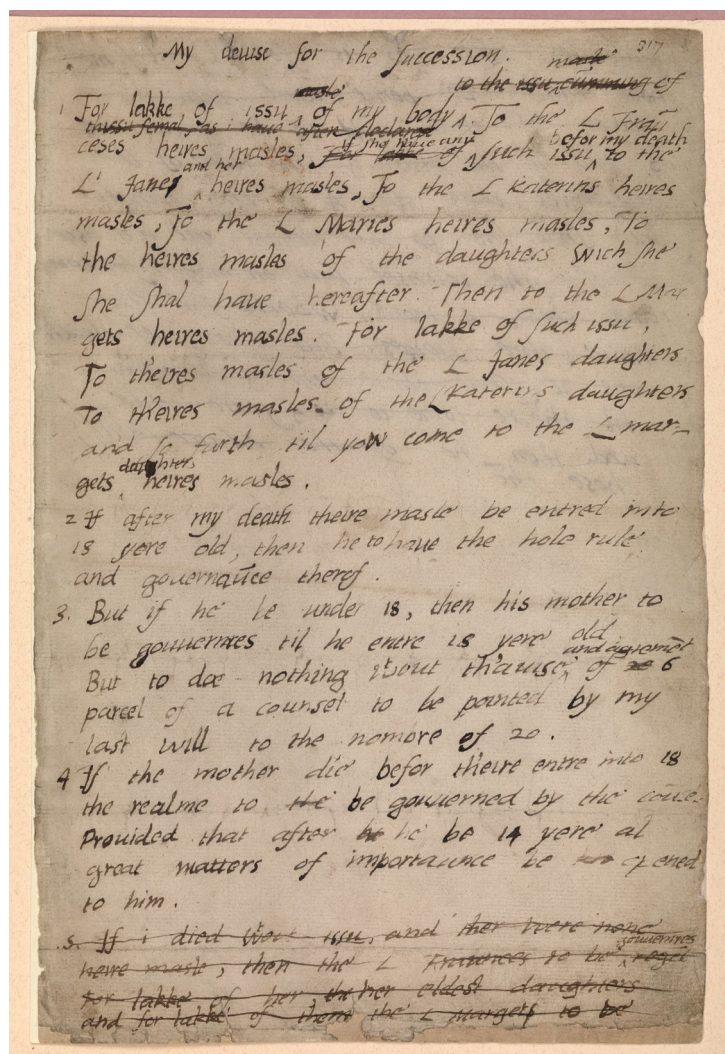 317
My deuise for the Succession.
1 For lakke of issu masle of my body to the issu cumming of masle
thissu femal, as i haue after declared. To the L Fraun
ceses heires masles, For lakke of if she haue any such issu befor my death to the
L' Janes and her heires masles, To the L Katerins heires
masles, To the L Maries heires masles, To
the heires masles of the daughters wich she
she shal haue hereafter. Then to the L Mar
gets heires masles. For lakke of such issu,
To theires masles of the L Janes daughters
To theires masles of the L Katerins daughters
and so forth til yow come to the L mar-
gets daughters heires masles.
2 If after my death theire masle be entred into
18 yere old, then he to haue the hole rule
and gouernaūce therof.
3. But if he be under 18, then his mother to
be gouuernres til he entre 18 yere old
But to doe nothing wtout thauise and agremēt of 6
parcel of a counsel to be pointed by my
last will to the nombre of 20.
4 If the mother die befor theire entre into 18
the realme to the be gouuerned by the coun
Prouided that after he be 14 yere al
great matters of importaunce be opened
to him.
5. If i died wtout issu, and ther were none
heire masle, then the L Fraunces to be gouuernres reget
For lakke of her, the her eldest daughters
and for lakke of them the L Margets to be